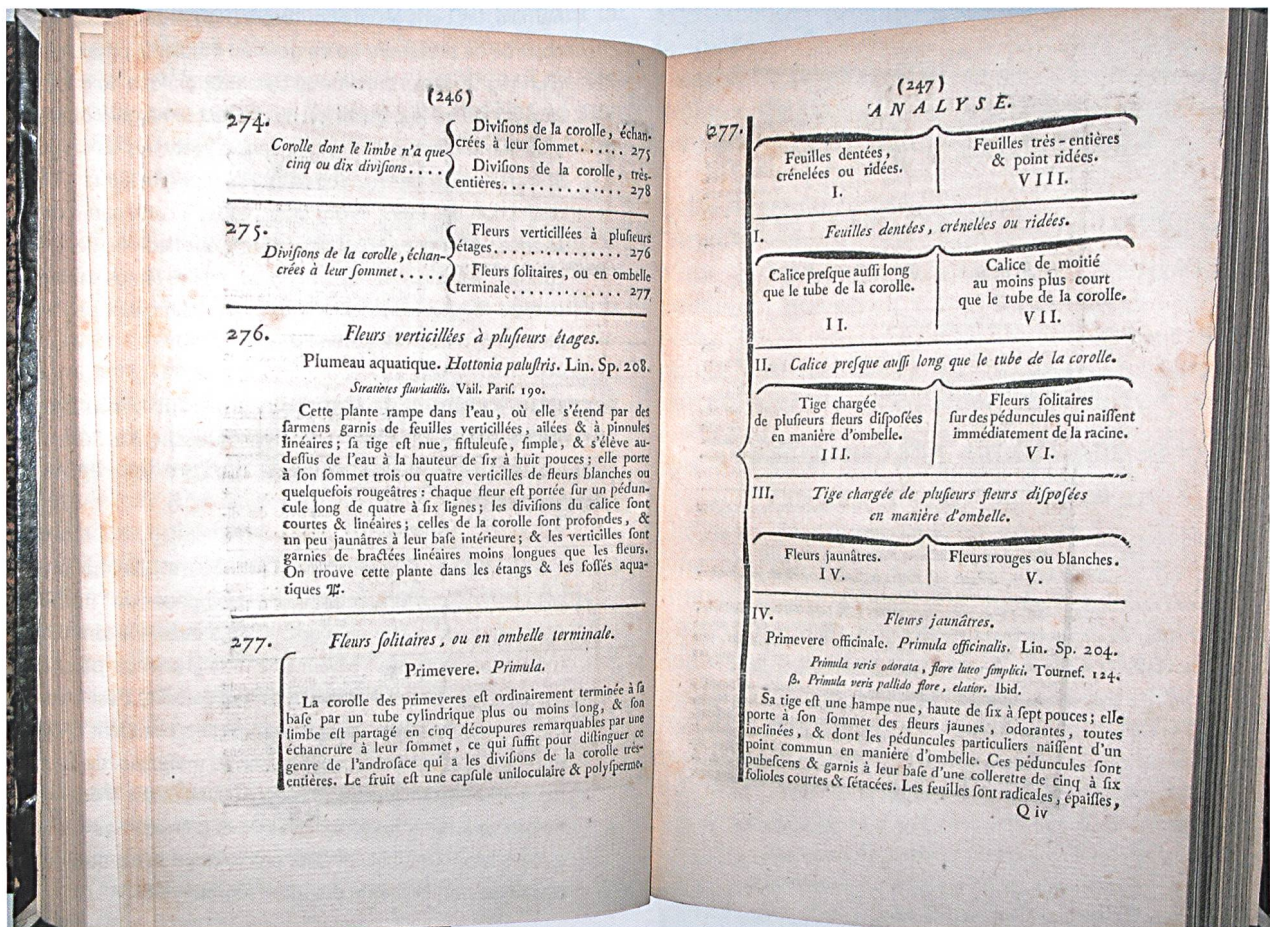 (246)
274.
Corolle dont le limbe n'a que
cinq ou dix diviſions....
Diviſions de la corolle, échan-
crées à leur ſommet...... 275
Diviſions de la corolle, très-
entières.............. 278
275.
Diviſions de la corolle, échan-
crées à leur ſommet.....
Fleurs verticillées à pluſieurs
étages.............. 276
Fleurs ſolitaires, ou en ombelle
terminale............. 277
276. Fleurs verticillées à pluſieurs étages.
Plumeau aquatique. Hottonia paluſtris. Lin. Sp. 208.
Stratiotes fluviatilis. Vail. Pariſ. 190.
Cette plante rampe dans l'eau, où elle s'étend par des
ſarmens garnis de feuilles verticillées, ailées & à pinnules
linéaires ; ſa tige eſt nue, fiſtuleuſe, ſimple, & s'élève au-
deſſus de l'eau à la hauteur de ſix à huit pouces ; elle porte
à ſon ſommet trois ou quatre verticilles de fleurs blanches ou
quelquefois rougeâtres : chaque fleur eſt portée ſur un pédun-
cule long de quatre à ſix lignes ; les diviſions du calice ſont
courtes & linéaires ; celles de la corolle ſont profondes, &
un peu jaunâtres à leur baſe intérieure ; & les verticilles ſont
garnies de bractées linéaires moins longues que les fleurs.
On trouve cette plante dans les étangs & les foſſés aqua-
tiques ♃.
277. Fleurs ſolitaires, ou en ombelle terminale.
Primevere. Primula.
La corolle des primeveres eſt ordinairement terminée à ſa
baſe par un tube cylindrique plus ou moins long, & ſon
limbe eſt partagé en cinq découpures remarquables par une
échancrure à leur ſommet, ce qui ſuffit pour diſtinguer ce
genre de l'androſace qui a les diviſions de la corolle très-
entières. Le fruit eſt une capſule uniloculaire & polyſperme.
(247)
ANALYSE.
277.
Feuilles dentées,
crénelées ou ridées.
I.
Feuilles très-entières
& point ridées.
VIII.
I. Feuilles dentées, crénelées ou ridées.
Calice preſque auſſi long
que le tube de la corolle.
II.
Calice de moitié
au moins plus court
que le tube de la corolle.
VII.
II. Calice preſque auſſi long que le tube de la corolle.
Tige chargée
de pluſieurs fleurs diſpoſées
en manière d'ombelle.
III.
Fleurs ſolitaires
ſur des péduncules qui naiſſent
immédiatement de la racine.
VI.
III. Tige chargée de pluſieurs fleurs diſpoſées
en manière d'ombelle.
Fleurs jaunâtres.
IV.
Fleurs rouges ou blanches.
V.
IV. Fleurs jaunâtres.
Primevere officinale. Primula officinalis. Lin. Sp. 204.
Primula veris odorata, flore luteo ſimplici. Tournef. 124.
β. Primula veris pallido flore, elatior. Ibid.
Sa tige eſt une hampe nue, haute de ſix à ſept pouces ; elle
porte à ſon ſommet des fleurs jaunes, odorantes, toutes
inclinées, & dont les péduncules particuliers naiſſent d'un
point commun en manière d'ombelle. Ces péduncules ſont
pubeſcens & garnis à leur baſe d'une collerette de cinq à ſix
folioles courtes & ſétacées. Les feuilles ſont radicales, épaiſſes,
Q iv